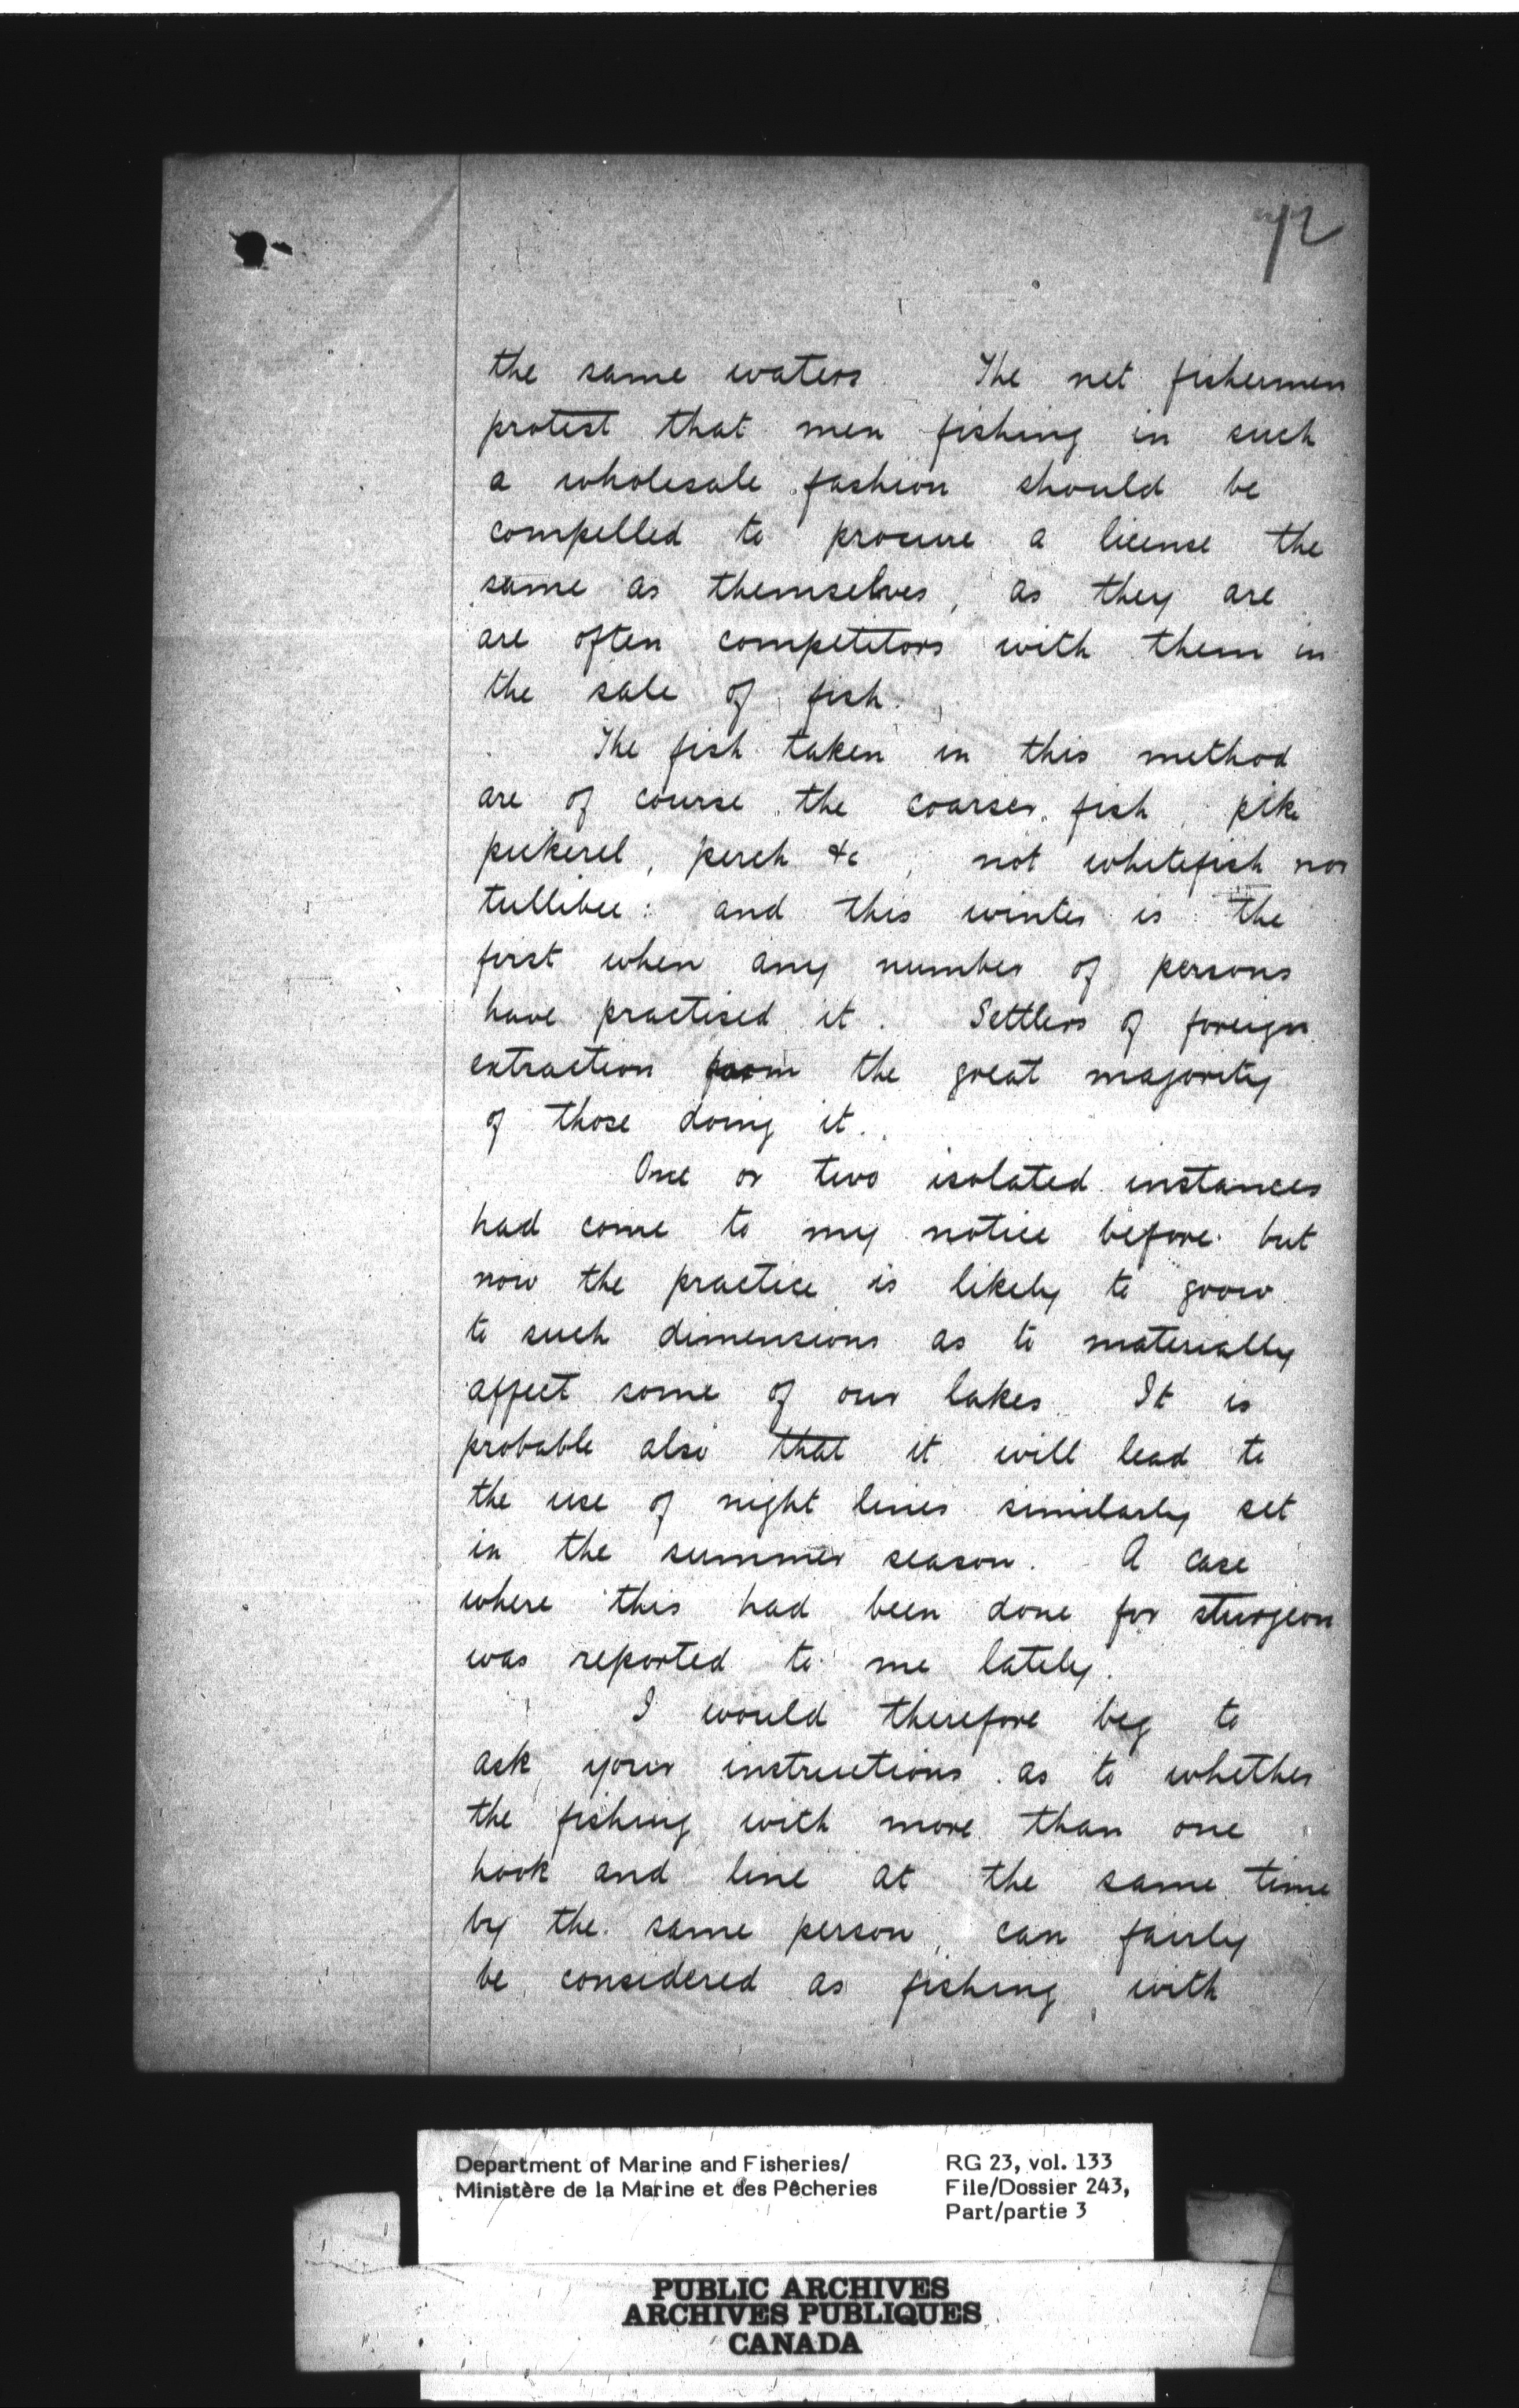 72
the same waters. The net fishermen
protest that men fishing in such
a wholesale fashion should be
compelled to procure a license the
same as themselves, as they are
are often competitors with them in
the sale of fish.
The fish taken in this method
are of course the coarser fish, pike
pickerel, perch &c, not whitefish nor
tullibee: and this winter is the
first when any number of persons
have practised it. Settlers of foreign
extraction form the great majority
of those doing it.
One or two isolated instances
had come to my notice before but
now the practice is likely to grow
to such dimensions as to materially
affect some of our lakes. It is
probable also that it will lead to
the use of night lines similarly set
in the summer season. A case
where this had been done for sturgeon
was reported to me lately.
I would therefore beg to
ask your instructions as to whether
the fishing with more than one
hook and line at the same time
by the same person, can fairly
be considered as fishing with
Department of Marine and Fisheries/ RG 23, vol. 133
Ministère de la Marine et des Pêcheries File/Dossier 243,
Part/partie 3
PUBLIC ARCHIVES
ARCHIVES PUBLIQUES
CANADA